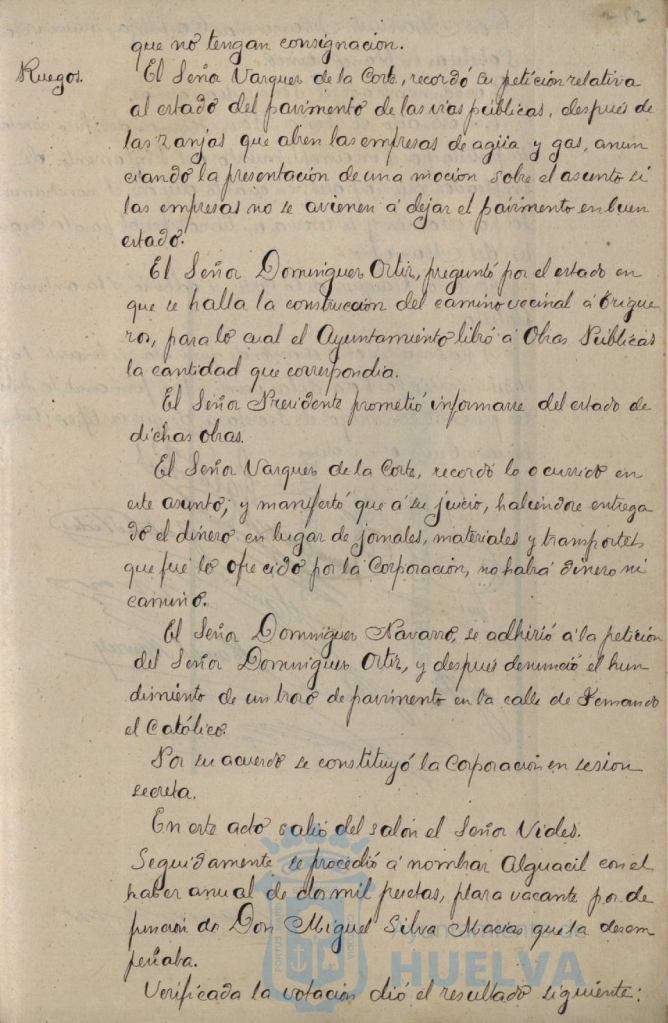 que no tengan consignacion.
Ruegos.
El Señor Vazquez de la Corte, recordó su petición relativa
al estado del pavimento de las vias públicas, después de
las zanjas que abren las empresas de agüa y gas, anun
ciando la presentación de una moción sobre el asunto si
las empresas no se avienen á dejar el pavimento en buen
estado.
El Señor Dominguez Ortiz, preguntó por el estado en
que se halla la construccion del camino vecinal á Trigue
ros, para lo cual el Ayuntamiento libró á Obras Públicas
la cantidad que correspondia.
El Señor Presidente prometió informarse del estado de
dichas obras.
El Señor Vazquez de la Corte, recordó lo ocurrido en
este asunto; y manifestó que á su juicio, haciendose entrega
do el dinero en lugar de jornales, materiales y transportes,
que fué lo ofrecido por la Corporación, no habrá dinero ni
camino.
El Señor Dominguez Navarro, se adhirió á la petición
del Señor Dominguez Ortiz, y después denunció el hun
dimiento de un trozo de pavimento en la calle de Fernando
el Católico.
Por su acuerdo se constituyó la Corporación en sesion
secreta.
En este acto salió del salón el Señor Vides.
Seguidamente se procedió á nombrar Alguacil con el
haber anual de dos mil pesetas, plaza vacante por de
funcion de Don Miguel Silva Macias que la desem
peñaba.
Verificada la votación dió el resultado siguiente:
HUELVA